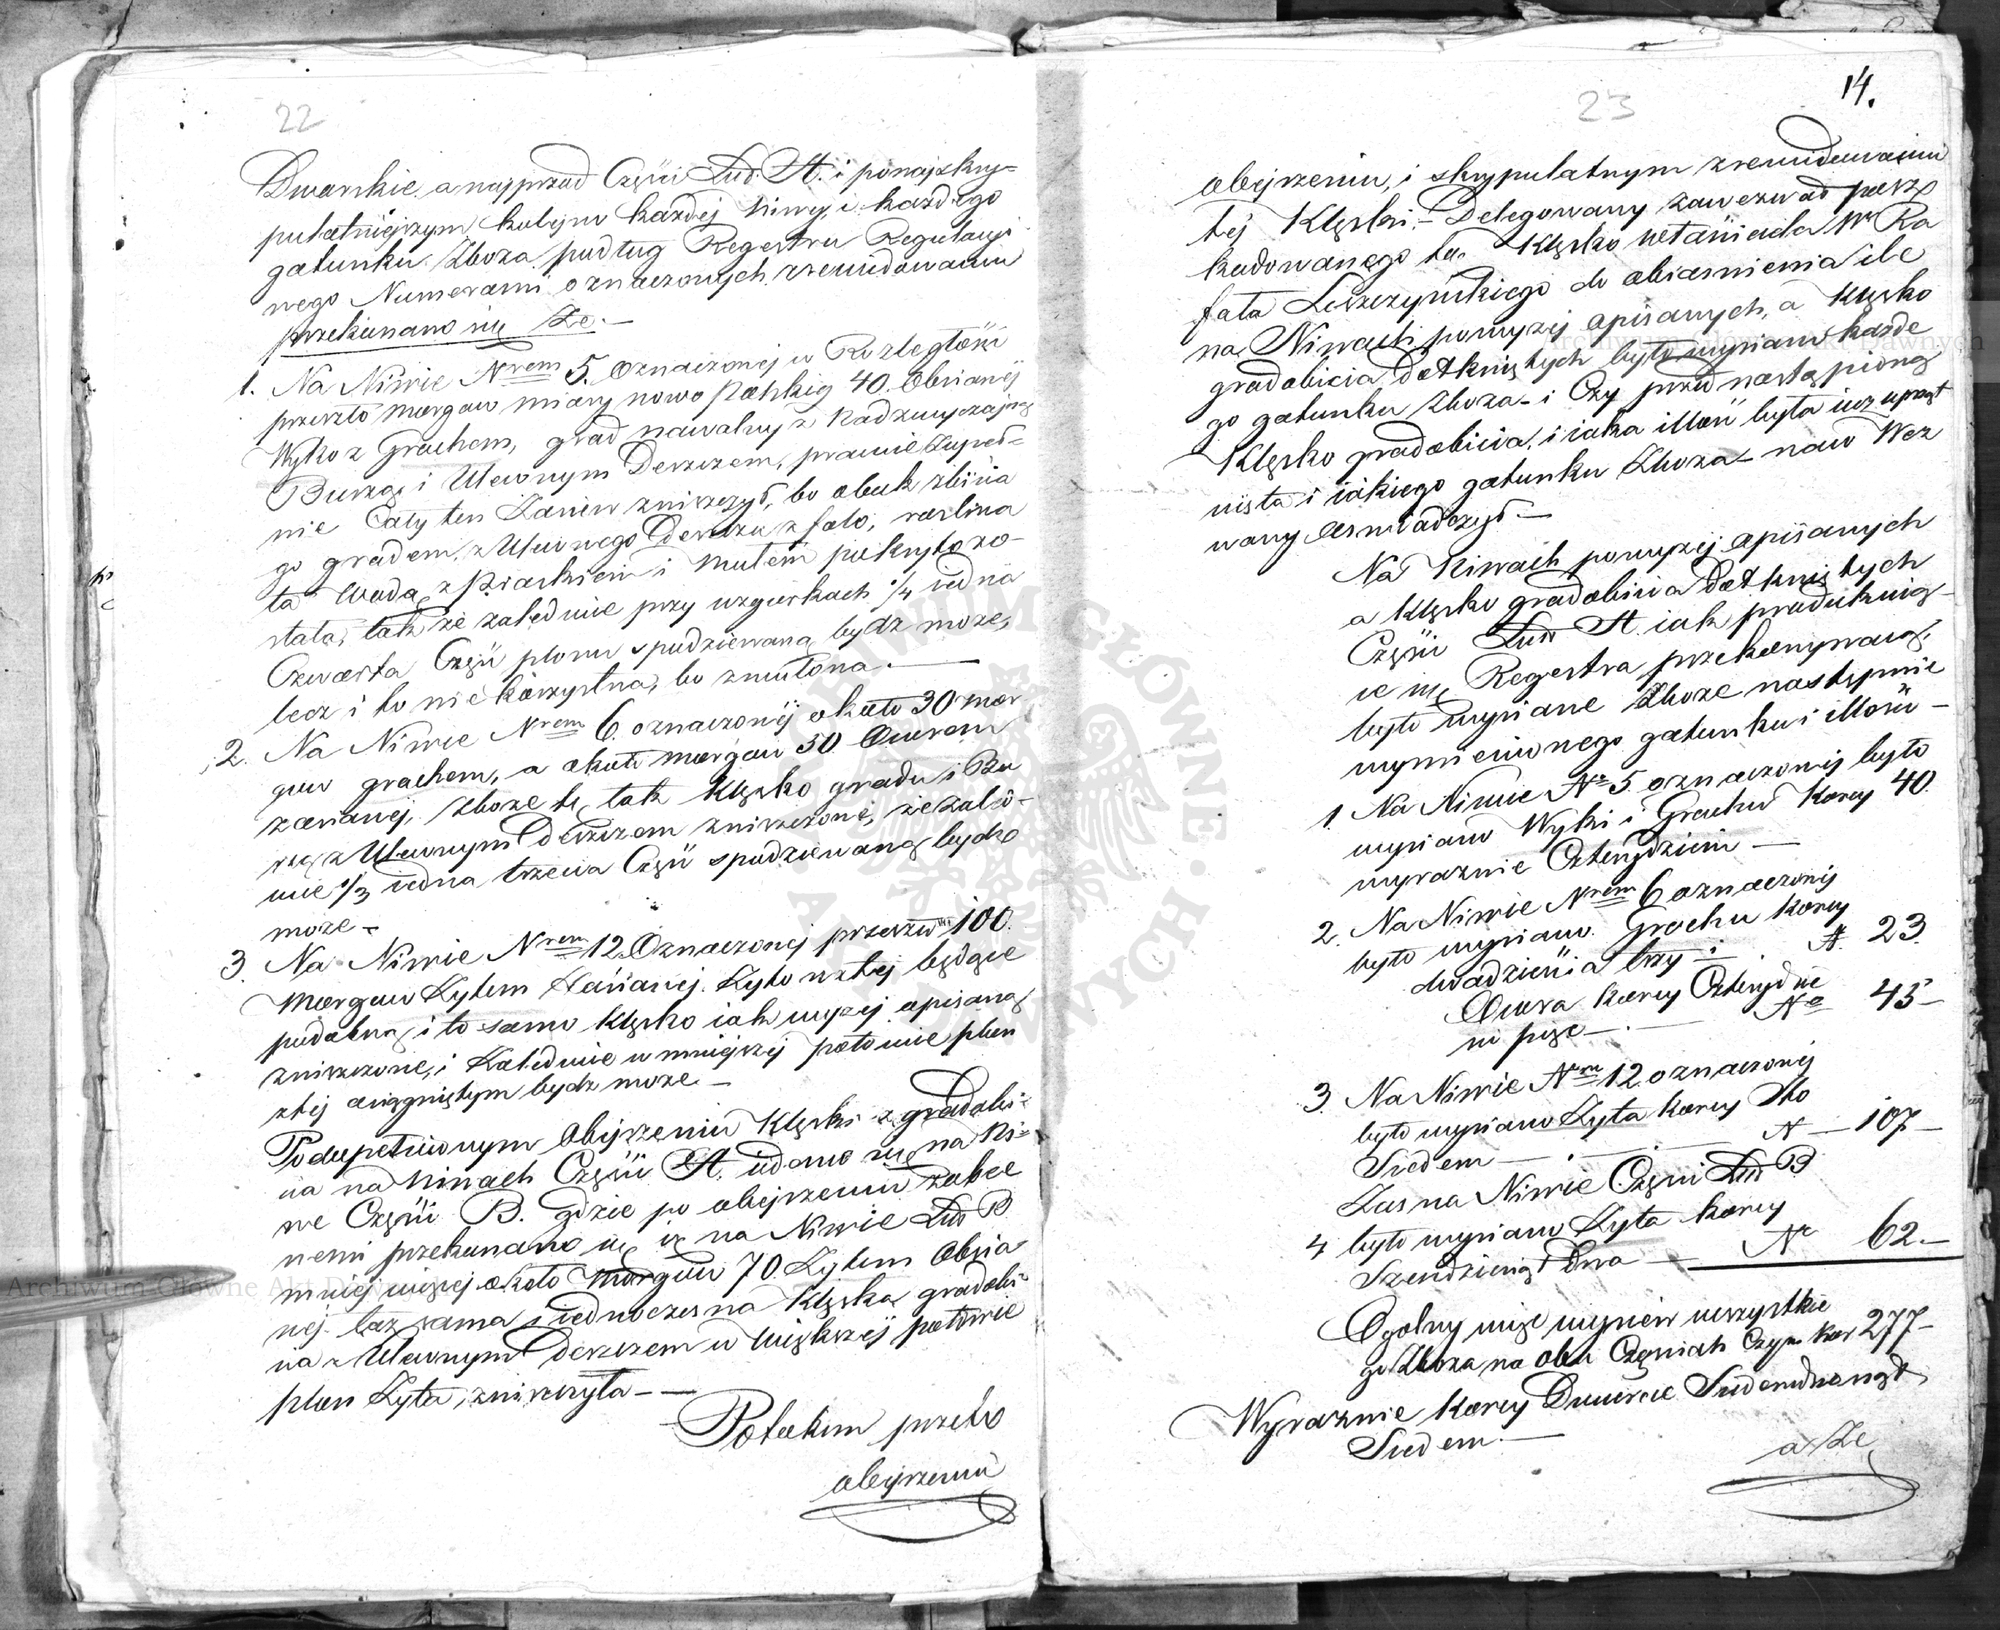 22
Dworskie a najprzod Części Lud A. i ponajskry-
pulatniejszym kolejno każdej Niwy, i każdego
gatunku Zboża podług Regestru Regulacyi
nego Numerami oznaczonych zrewidowaniu
przekonano się Że. —
1. Na Niwie Nrem 5. Oznaczonej w Rozległości
przeszło morgow miary nowo Polskiey 40. Obsianej
Wyko z Grochem, grad nawalny z Nadzwyczajną
Burzą i Ulewnym Deszczem, prawie Zupeł-
nie Cały ten Zasiew zniszczył, bo obok zbicia
go gradem, z Ulewnego Deszczu z falo, roslina
ta Wodą z Piaskiem i Mułem pokryto zo-
stała, tak że zaledwie przy wzgurkach 1/4 iedna
Czwarta Część plonu spodziewaną bydz może,
lecz i to nie korzystna, bo zmulona. —
2. Na Niwie Nrem 6. oznaczonéj około 30 mor
gow grochem, a około morgow 50 Owsem
zasianéj, Zboże te, tak Klęsko gradu i Bu
rzą z Ulewnym Deszczem zniszczone, że zale-
wie 1/3 iedna trzecia Część spodziewaną bydź
może —
3. Na Niwie Nrem 12. Oznaczonej przeszło 100.
Morgow Żytem Zasianej. Żyto w tej będące
podobną i to samo Klęsko iak wyżej opisaną
zniszczone, i Zaledwie w mniejszej połowie plon
z tej osiągniętym bydz może. —
Po dopełnionym Obejrzeniu Klęski z gradobi-
cia na Niwach Części A. udano się na Ni-
we Części B. gdzie po obejrzeniu Zaboe
nemi przekonano się iż na Niwie Lud B
mniej więcej około Morgow 70. Żytem Obsia
nej. taż sama i iednoczesna Klęska gradobi-
cia z Ulewnym Deszczem w większéj połowie
plon Żyta, zniszczyła — —
Po takim przeto
obejrzeniu
23
14.
obejrzeniu, i skrypulatnym zrewidowaniu
téj Klęski. — Delegowany zawezwał posz
kodowanego tą Klęsko właściciela Wo Ra
fała Leszczyńskiego do obiasnienia ile
na Niwach powyzéj opisanych, a Klęsko
gradobicia dotkniętych było wysiam każde
go gatunku Zboża — i Czy przed nastąpioną
Klęsko gradobicia, i iaka illość była iuz uprząt
nięta i iakiego gatunku Zboża — na co Wez
wany Oswiadczył —
Na Niwach powyzéj opisanych
a Klęsko gradobicia dotkniętych
Części Lud A. iak produkuią-
ce się Regestra przekonywaią,
było wysiane Zboże następnie
wymienionego gatunku i illości —
1. Na Niwie No 5 oznaczonéj było
wysiano Wyki i Grochu Korcy 40.
wyraznie Czterydzieści —
2. Na Niwie Nrem 6 oznaczonéj
było wysiano. Grochu Korcy
dwadzieścia trzy i N. 23.
Owsa korcy Czterydzie
ści pięć — . — No 45 —
3. Na Niwie Nrm 12. oznaczonéj
było wysiano Żyta korcy Sto
Siedem — . — . — N — 107 —
Zas na Niwie Części Lud B
4 było wysiano Żyta korcy
Szesdziesiąt Dwa — No 62. —
Ogolny więc wysiew wszystkie
go Zboża na obu Częsciach Czyn: Kor 277 —
Wyraznie Korcy Dwieście Siedemdziesiąt
Siedem — a Że
Archiwum Główne Akt Dawnych
Archiwum Główne Akt Dawnych
ARCHIWUM GŁÓWNE AKT DAWNYCH